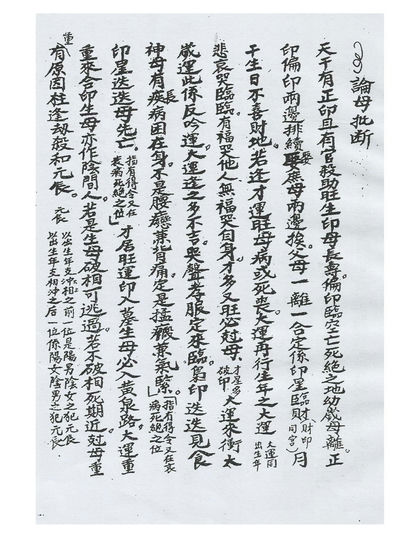 論母批断
天干有正印且有官殺助旺生印母長壽。偏印臨空亡死絕之地幼歲母離。正
印偏印兩邊排續娶庶母兩邊挨。父母一離一合定係印星臨財(財印同宮)。月
干生日不喜財地。若逢才運旺母病或死喪。大運再行生年之大運(大運同出生年
悲哀哭臨臨。有福哭他人無福哭自身。才多又旺必尅母。(才星多破印)大運來衝太
歲運此係反吟運大運逢之多不吉哭聲孝服定來臨。梟印迭迭見食
神母有疾病長困在身。不是腰癮兼背痛定是猛 兼氣緊。(指有得令又在衰病死絕之位
印星迭迭母先亡。(指有得令又在衰病死絕之位)才居旺運印入墓生母必入黃泉路大運重
重來合印生母亦作陰間人。若是生母破相可逃過。若不破相死期近尅母重
重有原因柱逢劫殺和元辰。元辰 以出生年支冲相之前一位是陽男陰女之犯元辰 以出生年支相冲之后一位係陽女陰男之犯元辰